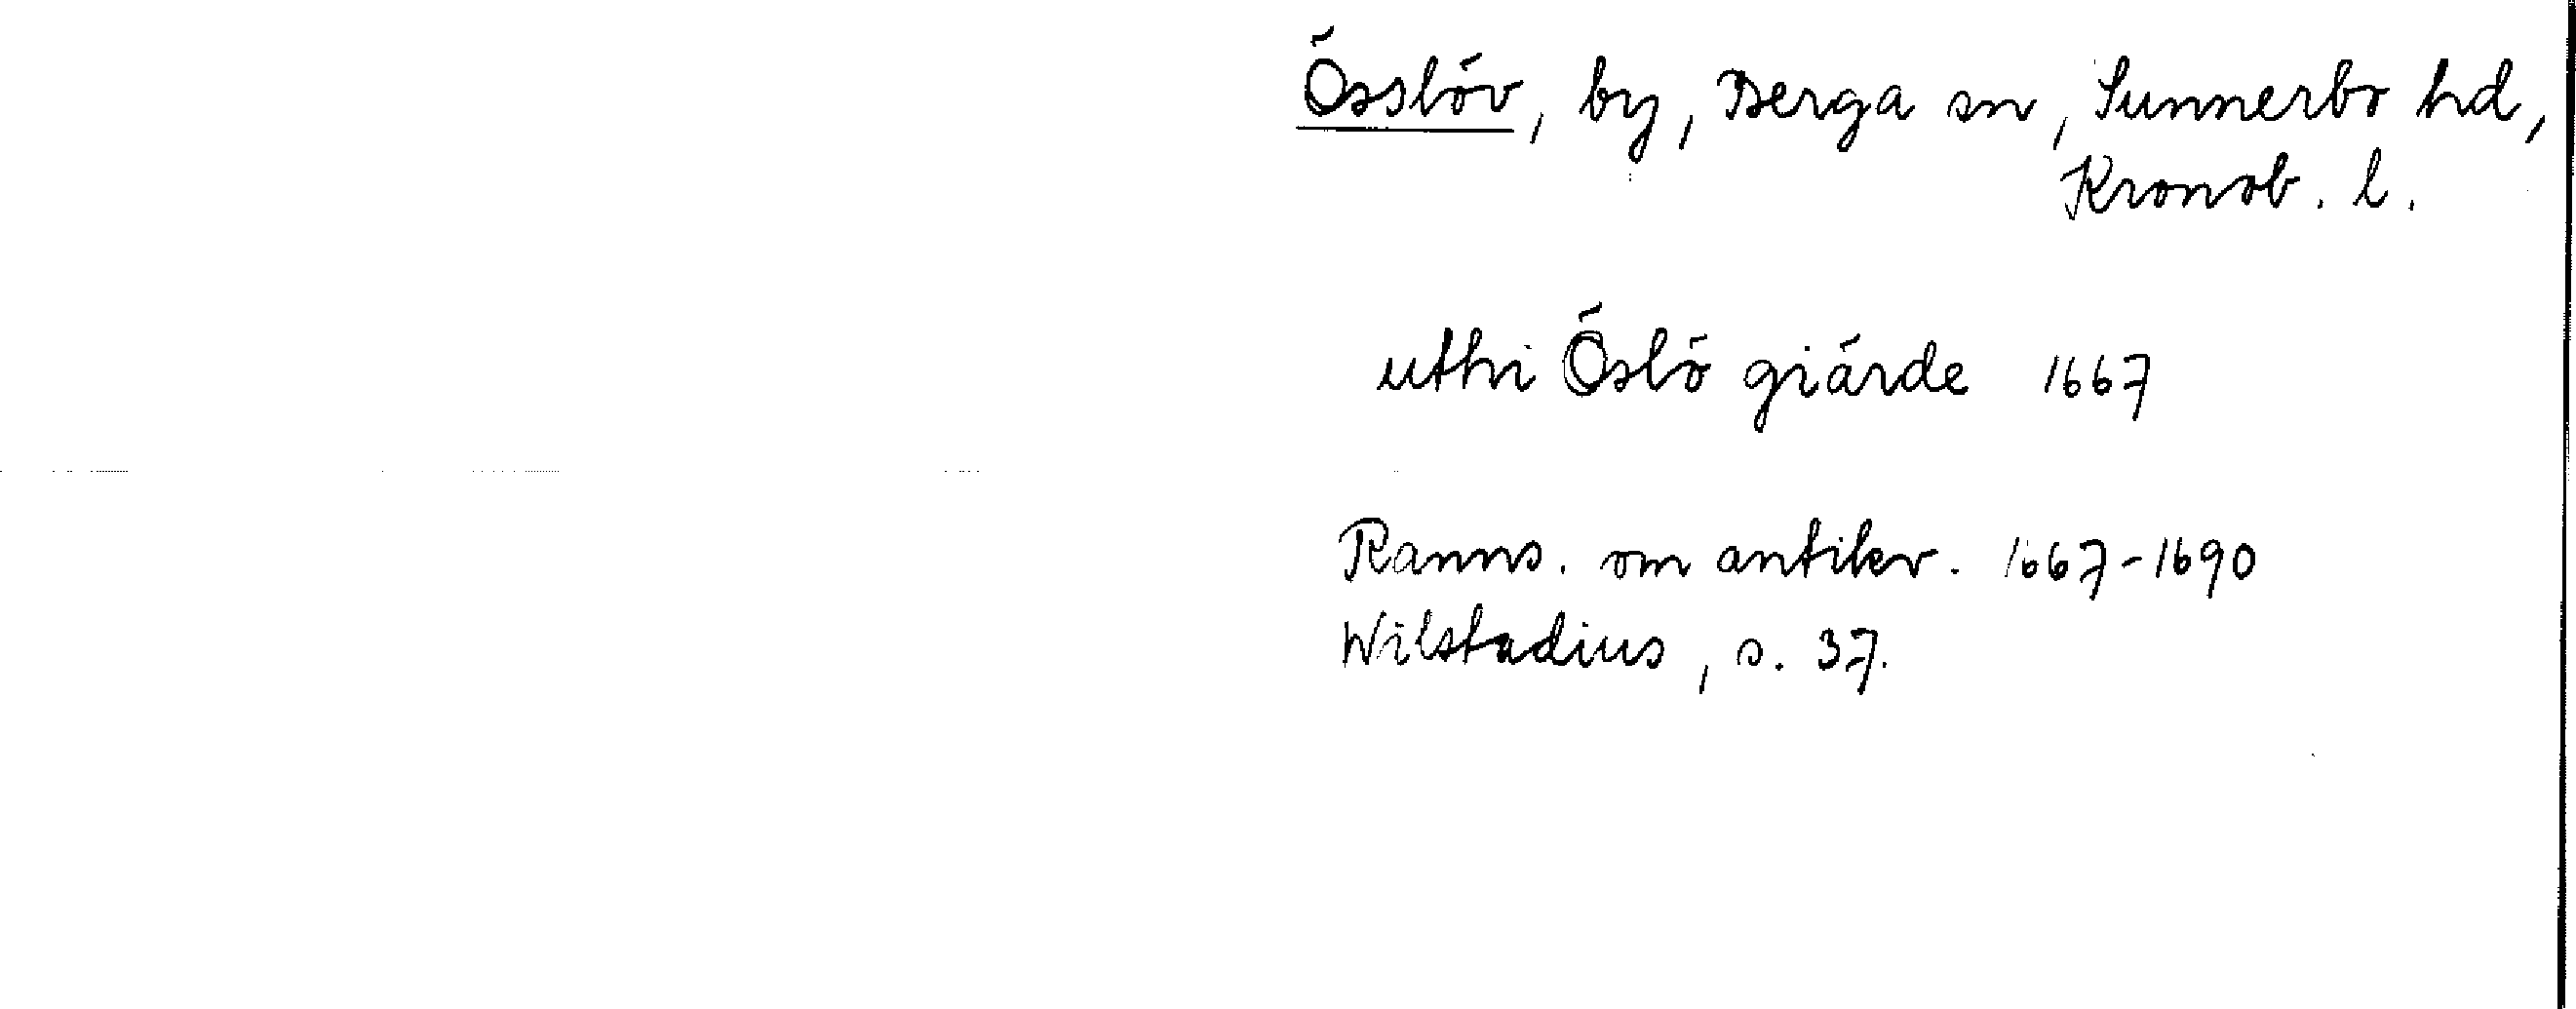 Össlöv, by, Berga sn, Sunnerbo hd,
Kronob. l.
uthi Öslö giärde 1667
Ranns. om antikv. 1667-1690
Wilstadius, s. 37.